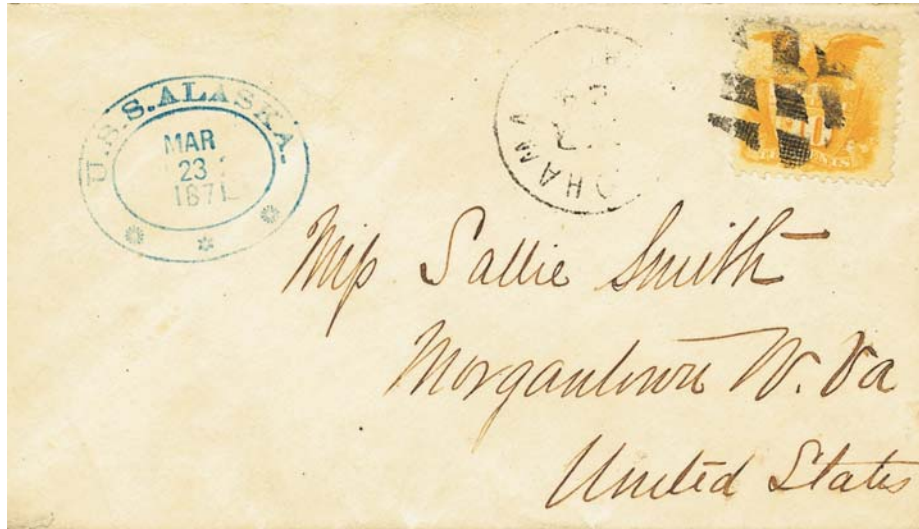 U.S.S. ALASKA.
MAR
23
1871
10
Miss Sallie Smith
Morgantown W. Va
United States